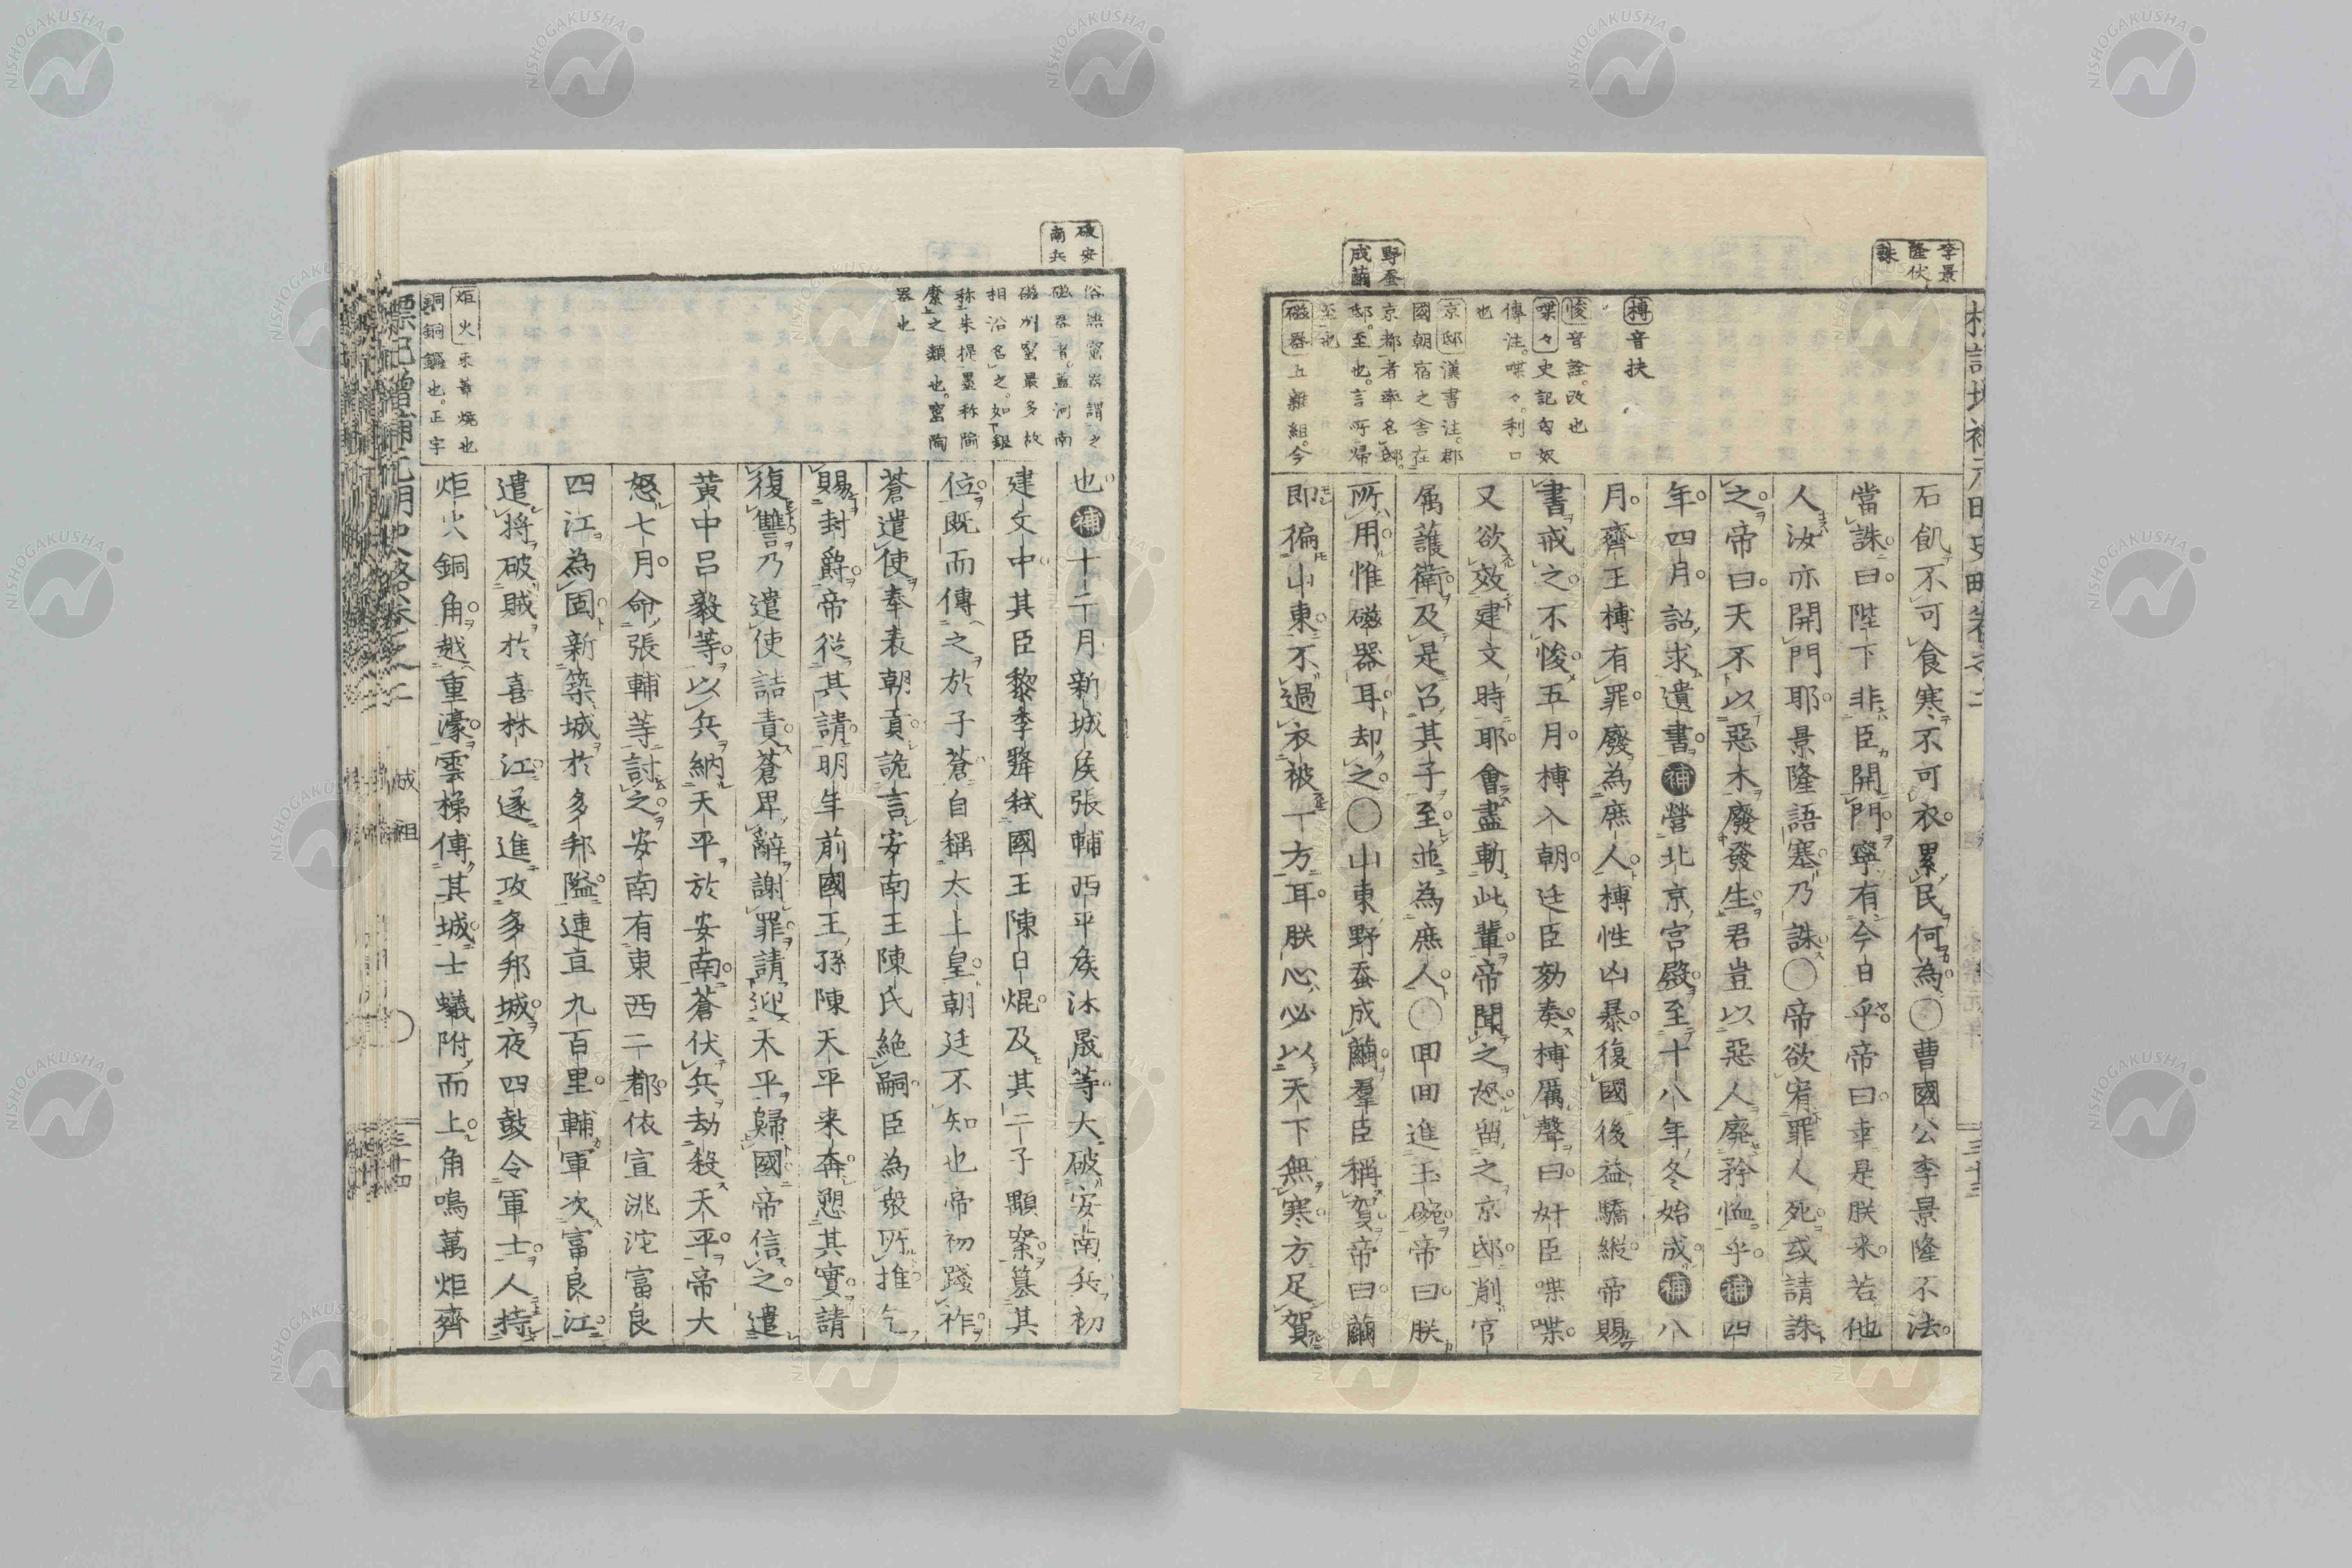 李景
隆伏
誅
野蚕
成繭
石飢不可食寒不可衣累民何為○曹國公李景隆不法
當誅曰陛下非臣開門寧有今日乎帝曰幸是朕来若他
人汝亦開門耶景隆語塞乃誅○帝欲宥罪人死或請誅
之帝曰天不以惡木廢發生君豈以惡人廃矜恤乎補四
年四月詔求遺書補營北京宮殿至十八年冬始成補八
月齊王榑有罪廢為庶人榑性凶暴復國後益驕縦帝賜
書戒之不悛五月榑入朝廷臣劾奏榑厲聲曰奸臣喋喋
又欲效建文時耶會盡斬此輩帝聞之怒留之京邸削官
属護衛及是召其子至並為庶人○回回進玉碗帝曰朕
所用惟磁器耳却之○山東野蚕成繭羣臣稱賀帝曰繭
即徧山東不過衣被一方耳朕心必以天下無寒方足賀
榑音扶
悛音詮。改也
喋々史記匈奴
傳注。喋々。利口
也
京邸漢書注。郡
國朝宿之舎在
京都者率名邸。
邸。至也。言所帰
至也
磁器上雜組。今
破安
南兵
俗語窯器謂之
磁器者。蓋河南
磁州窯最多故
相沿名之。如銀
称朱提墨称隃
麋之類也。窯陶
器也
也補十二月新城侯張輔西平侯沐晟等大破安南兵初
建文中其臣黎季犛弑國王陳日焜及其二子顒㮈簒其
位既而傳之於子蒼自稱太上皇朝廷不知也帝初踐祚
蒼遣使奉表朝貢詭言安南王陳氏絶嗣臣為衆所推乞
賜封爵帝從其請明年前國王孫陳天平来奔愬其實請
復讐乃遣使詰責蒼卑辭謝罪請迎天平歸國帝信之遣
黄中呂毅等以兵納天平於安南蒼伏兵劫殺天平帝大
怒七月命張輔等討之安南有東西二都依宣洮沱富良
四江為固新築城於多邦隘連亘九百里輔軍次富良江
遣将破賊於喜林江遂進攻多邦城夜四鼓令軍士人持
炬火銅角越重濠雲梯傅其城士蟻附而上角鳴萬炬齊
炬火禾葦燒也
銅銅鑼也。正字
標記增補元明史略卷之二 成祖 三十四